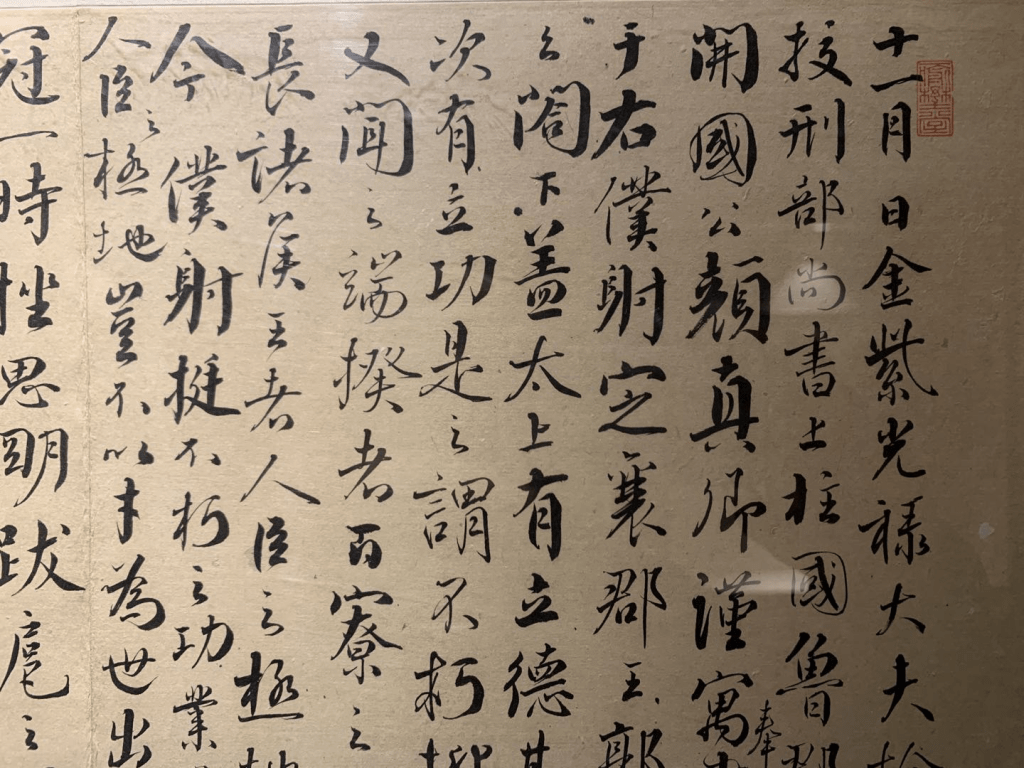 十一月日金紫光祿大夫檢
挍刑部尚書上柱國魯郡
開國公顏真卿謹寓書
奉
于右僕射定襄郡王郭
之閤下蓋太上有立德其
次有立功是之謂不朽抑
又聞之端揆者百寮之
長諸侯王者人臣之極地
今僕射挺不朽之功業
人臣之極地豈不以才為世出
冠一時挫思明跋扈之